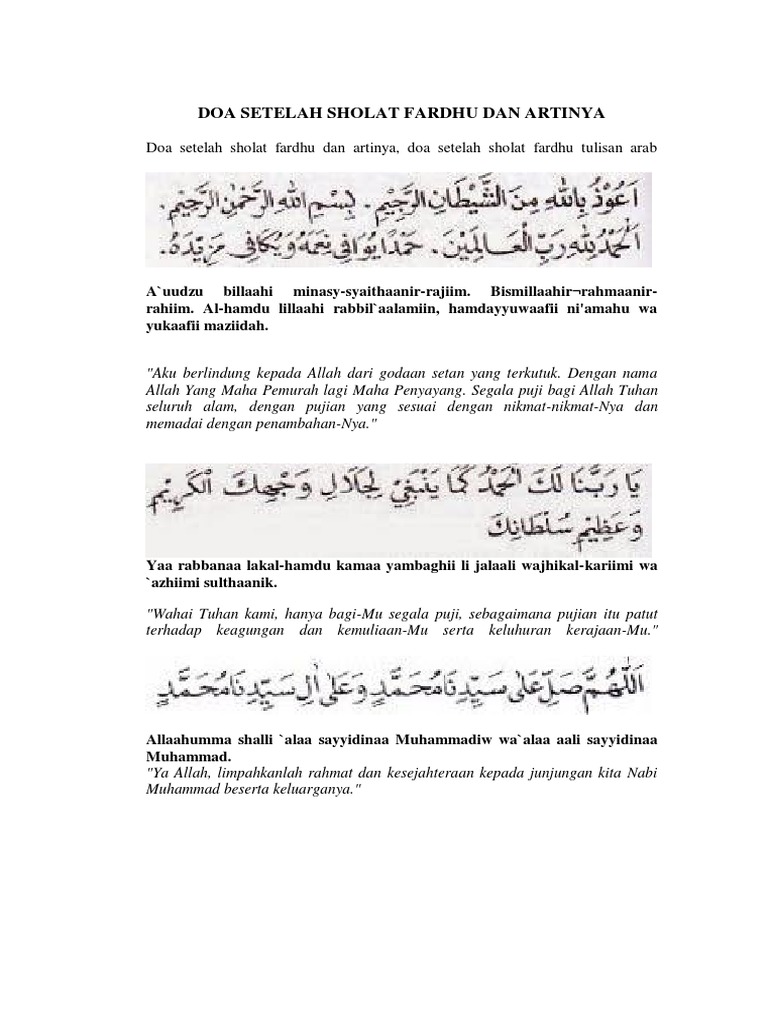 DOA SETELAH SHOLAT FARDHU DAN ARTINYA
Doa setelah sholat fardhu dan artinya, doa setelah sholat fardhu tulisan arab
اَعُوْذُ بِاللهِ مِنَ الشَّيْطَانِ الرَّجِيْمِ. بِسْمِ اللهِ الرَّحْمٰنِ الرَّحِيْمِ.
اَلْحَمْدُ لِلّٰهِ رَبِّ الْعَالَمِيْنَ. حَمْدًا يُوَافِي نِعَمَهُ وَيُكَافِي مَزِيْدَهُ.
A`uudzu billaahi minasy-syaithaanir-rajiim. Bismillaahir¬rahmaanir-
rahiim. Al-hamdu lillaahi rabbil`aalamiin, hamdayyuwaafii ni'amahu wa
yukaafii maziidah.
"Aku berlindung kepada Allah dari godaan setan yang terkutuk. Dengan nama
Allah Yang Maha Pemurah lagi Maha Penyayang. Segala puji bagi Allah Tuhan
seluruh alam, dengan pujian yang sesuai dengan nikmat-nikmat-Nya dan
memadai dengan penambahan-Nya."
يَا رَبَّنَا لَكَ الْحَمْدُ كَمَا يَنْبَغِيْ لِجَلَالِ وَجْهِكَ الْكَرِيْمِ
وَعَظِيْمِ سُلْطَانِكَ
Yaa rabbanaa lakal-hamdu kamaa yambaghii li jalaali wajhikal-kariimi wa
`azhiimi sulthaanik.
"Wahai Tuhan kami, hanya bagi-Mu segala puji, sebagaimana pujian itu patut
terhadap keagungan dan kemuliaan-Mu serta keluhuran kerajaan-Mu."
اَللّٰهُمَّ صَلِّ عَلٰى سَيِّدِنَا مُحَمَّدٍ وَعَلٰى اٰلِ سَيِّدِنَا مُحَمَّدٍ
Allaahumma shalli `alaa sayyidinaa Muhammadiw wa`alaa aali sayyidinaa
Muhammad.
"Ya Allah, limpahkanlah rahmat dan kesejahteraan kepada junjungan kita Nabi
Muhammad beserta keluarganya."